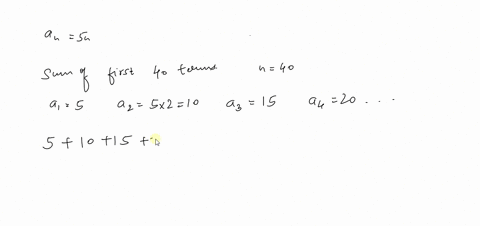 aₙ = 5n
Sum of first 40 terms n = 40
a₁ = 5 a₂ = 5×2 = 10 a₃ = 15 a₄ = 20 . . .
5 + 10 + 15 +